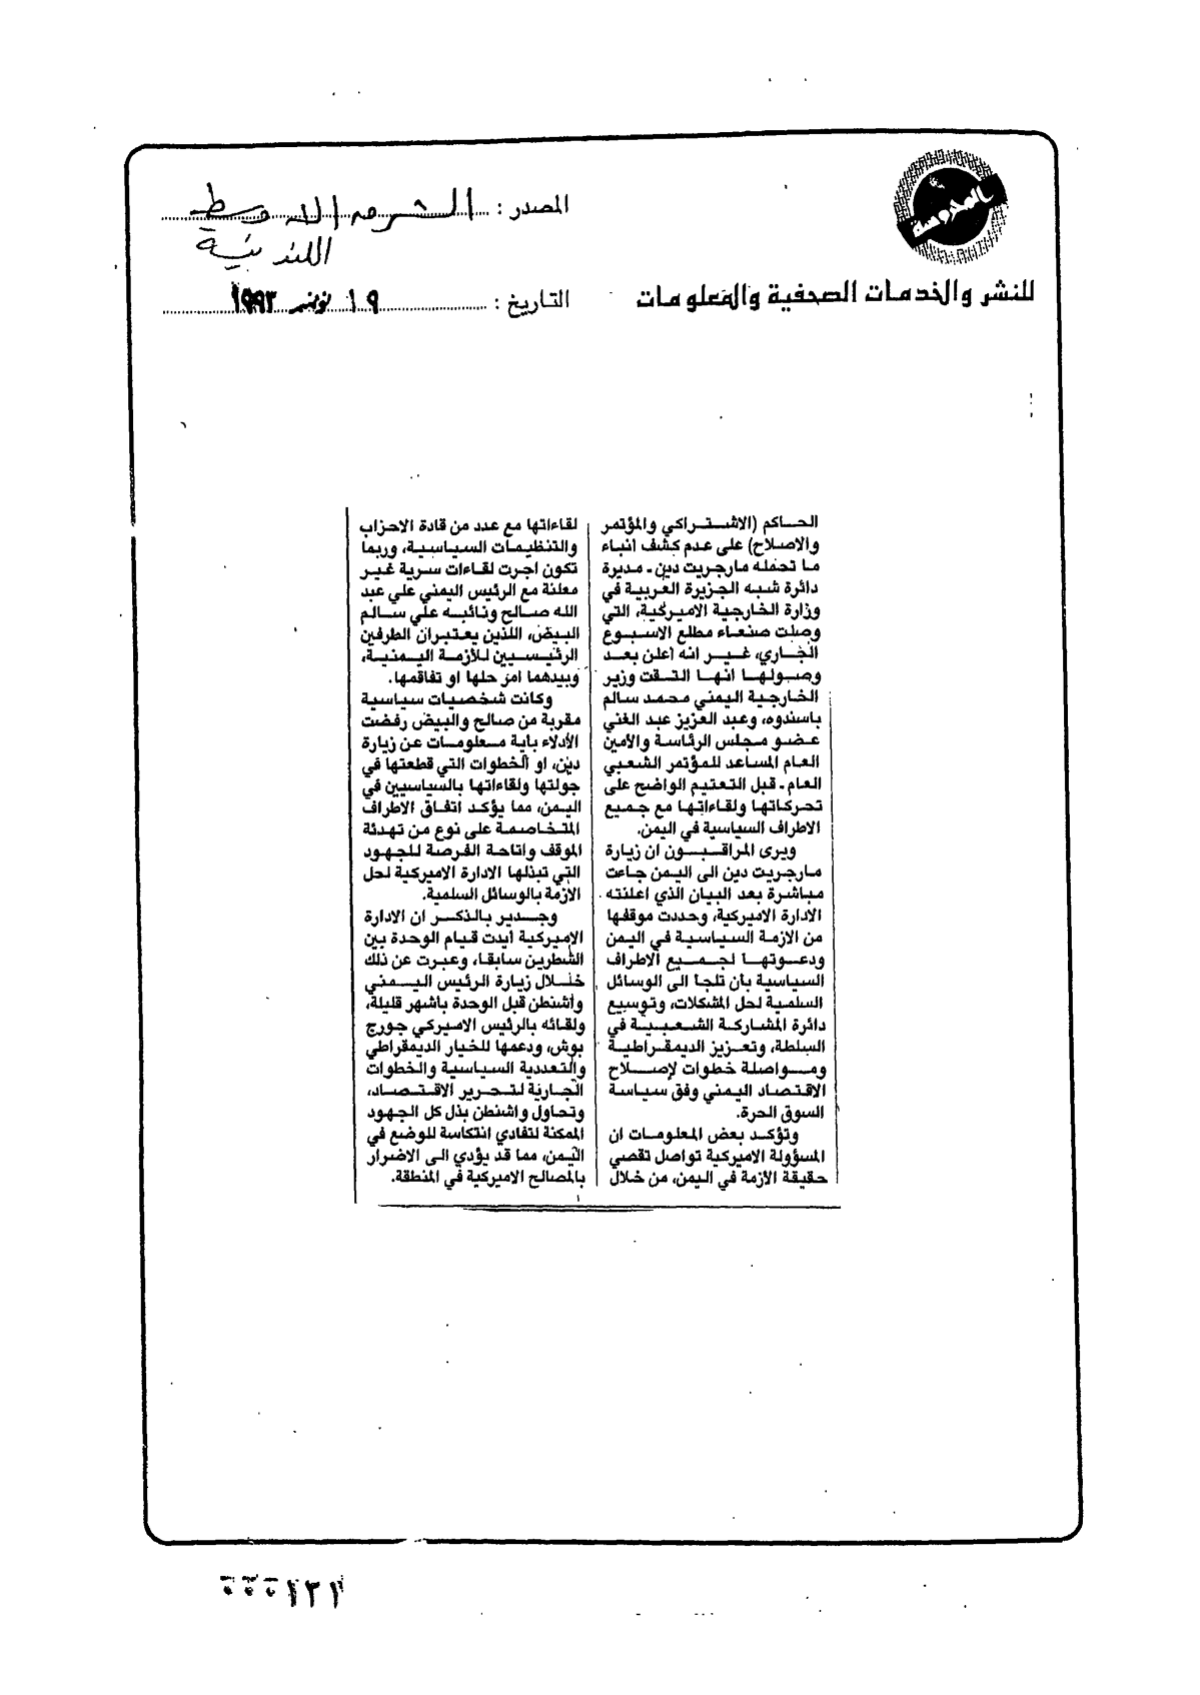 المحروسة
للنشر والخدمات الصحفية والمعلومات
المصدر : الشرق الاوسط
اللندنية
التاريخ : ١٩ نوفمبر ١٩٩٣
الحاكم (الاشتراكي والمؤتمر
والاصلاح) على عدم كشف انباء
ما تحمله مارجريت دين ـ مديرة
دائرة شبه الجزيرة العربية في
وزارة الخارجية الاميركية، التي
وصلت صنعاء مطلع الاسبوع
الجاري، غير انه اعلن بعد
وصولها انها التقت وزير
الخارجية اليمني محمد سالم
باسندوه، وعبد العزيز عبد الغني
عضو مجلس الرئاسة والامين
العام المساعد للمؤتمر الشعبي
العام ـ قبل التعتيم الواضح على
تحركاتها ولقاءاتها مع جميع
الاطراف السياسية في اليمن.
ويرى المراقبون ان زيارة
مارجريت دين الى اليمن جاءت
مباشرة بعد البيان الذي اعلنته
الادارة الاميركية، وحددت موقفها
من الازمة السياسية في اليمن
ودعوتها لجميع الاطراف
السياسية بأن تلجا الى الوسائل
السلمية لحل المشكلات، وتوسيع
دائرة المشاركة الشعبية في
السلطة، وتعزيز الديمقراطية
ومواصلة خطوات لإصلاح
الاقتصاد اليمني وفق سياسة
السوق الحرة.
وتؤكد بعض المعلومات ان
المسؤولة الاميركية تواصل تقصي
حقيقة الأزمة في اليمن، من خلال
لقاءاتها مع عدد من قادة الاحزاب
والتنظيمات السياسية، وربما
تكون اجرت لقاءات سرية غير
معلنة مع الرئيس اليمني علي عبد
الله صالح ونائبه علي سالم
البيض، اللذين يعتبران الطرفين
الرئيسيين للأزمة اليمنية،
وبيدهما امر حلها او تفاقمها.
وكانت شخصيات سياسية
مقربة من صالح والبيض رفضت
الأدلاء باية معلومات عن زيارة
دين، او الخطوات التي قطعتها في
جولتها ولقاءاتها بالسياسيين في
اليمن، مما يؤكد اتفاق الاطراف
المتخاصمة على نوع من تهدئة
الموقف واتاحة الفرصة للجهود
التي تبذلها الادارة الاميركية لحل
الأزمة بالوسائل السلمية.
وجدير بالذكر ان الادارة
الاميركية ايدت قيام الوحدة بين
الشطرين سابقا، وعبرت عن ذلك
خلال زيارة الرئيس اليمني
واشنطن قبل الوحدة باشهر قليلة،
ولقائه بالرئيس الاميركي جورج
بوش، ودعمها للخيار الديمقراطي
والتعددية السياسية والخطوات
الجارية لتحرير الاقتصاد،
وتحاول واشنطن بذل كل الجهود
الممكنة لتفادي انتكاسة للوضع في
اليمن، مما قد يؤدي الى الاضرار
بالمصالح الاميركية في المنطقة.